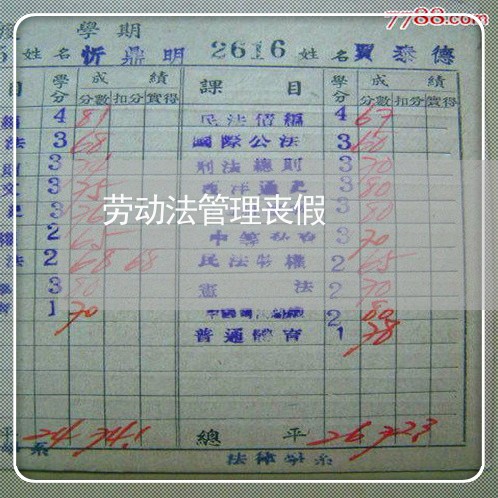 7788.com
學期
姓名 忻鼎明 2616 姓名 賈泰德
目 學分 成績 課目 學分 成績
分數 扣分 實得 分數 扣分 實得
4 81 民法債編 4 67
法 3 68 國際公法 3 60
3 刑法總則 3 70
3 75 西洋通史 3 80
3 3 80
劳动法管理丧假
2 65 3 70
法 2 68 68 民法物權 2 65
3 80 憲法 2 70
1 70 2 80
普通體育 1 78
平 24 74.1 總平 26 72.3
系 法律學系